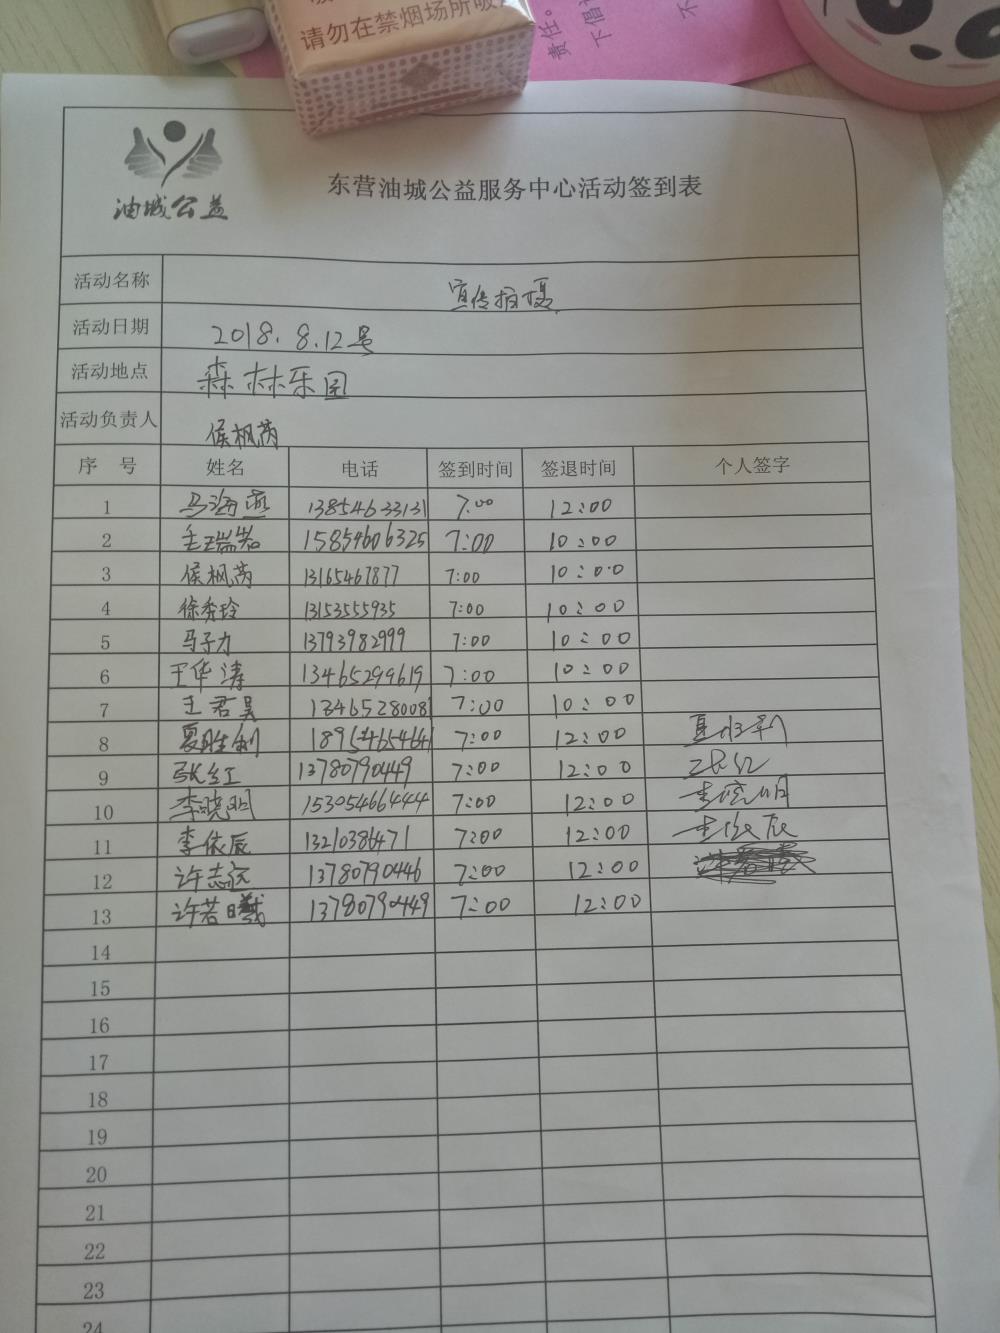 请勿在禁烟场所吸
责任。
下倡
不
油城公益
东营油城公益服务中心活动签到表
活动名称 宣传拍摄
活动日期 2018.8.12号
活动地点 森林乐园
活动负责人 侯枫芮
序号 姓名 电话 签到时间 签退时间 个人签字
1 马海燕 13854633131 7:00 12:00
2 王瑞岩 15854606325 7:00 10:00
3 侯枫芮 13165467877 7:00 10:00
4 徐秀玲 13153555935 7:00 10:00
5 马子力 13793982999 7:00 10:00
6 王华涛 13465299619 7:00 10:00
7 王君昊 13465280081 7:00 10:00
8 夏胜利 18954654641 7:00 12:00 夏胜利
9 张红 13780790449 7:00 12:00 张红
10 李晓明 15305466444 7:00 12:00 李晓明
11 李依辰 13210386471 7:00 12:00 李依辰
12 许志远 13780790446 7:00 12:00
13 许若曦 13780790449 7:00 12:00
14
15
16
17
18
19
20
21
22
23
24